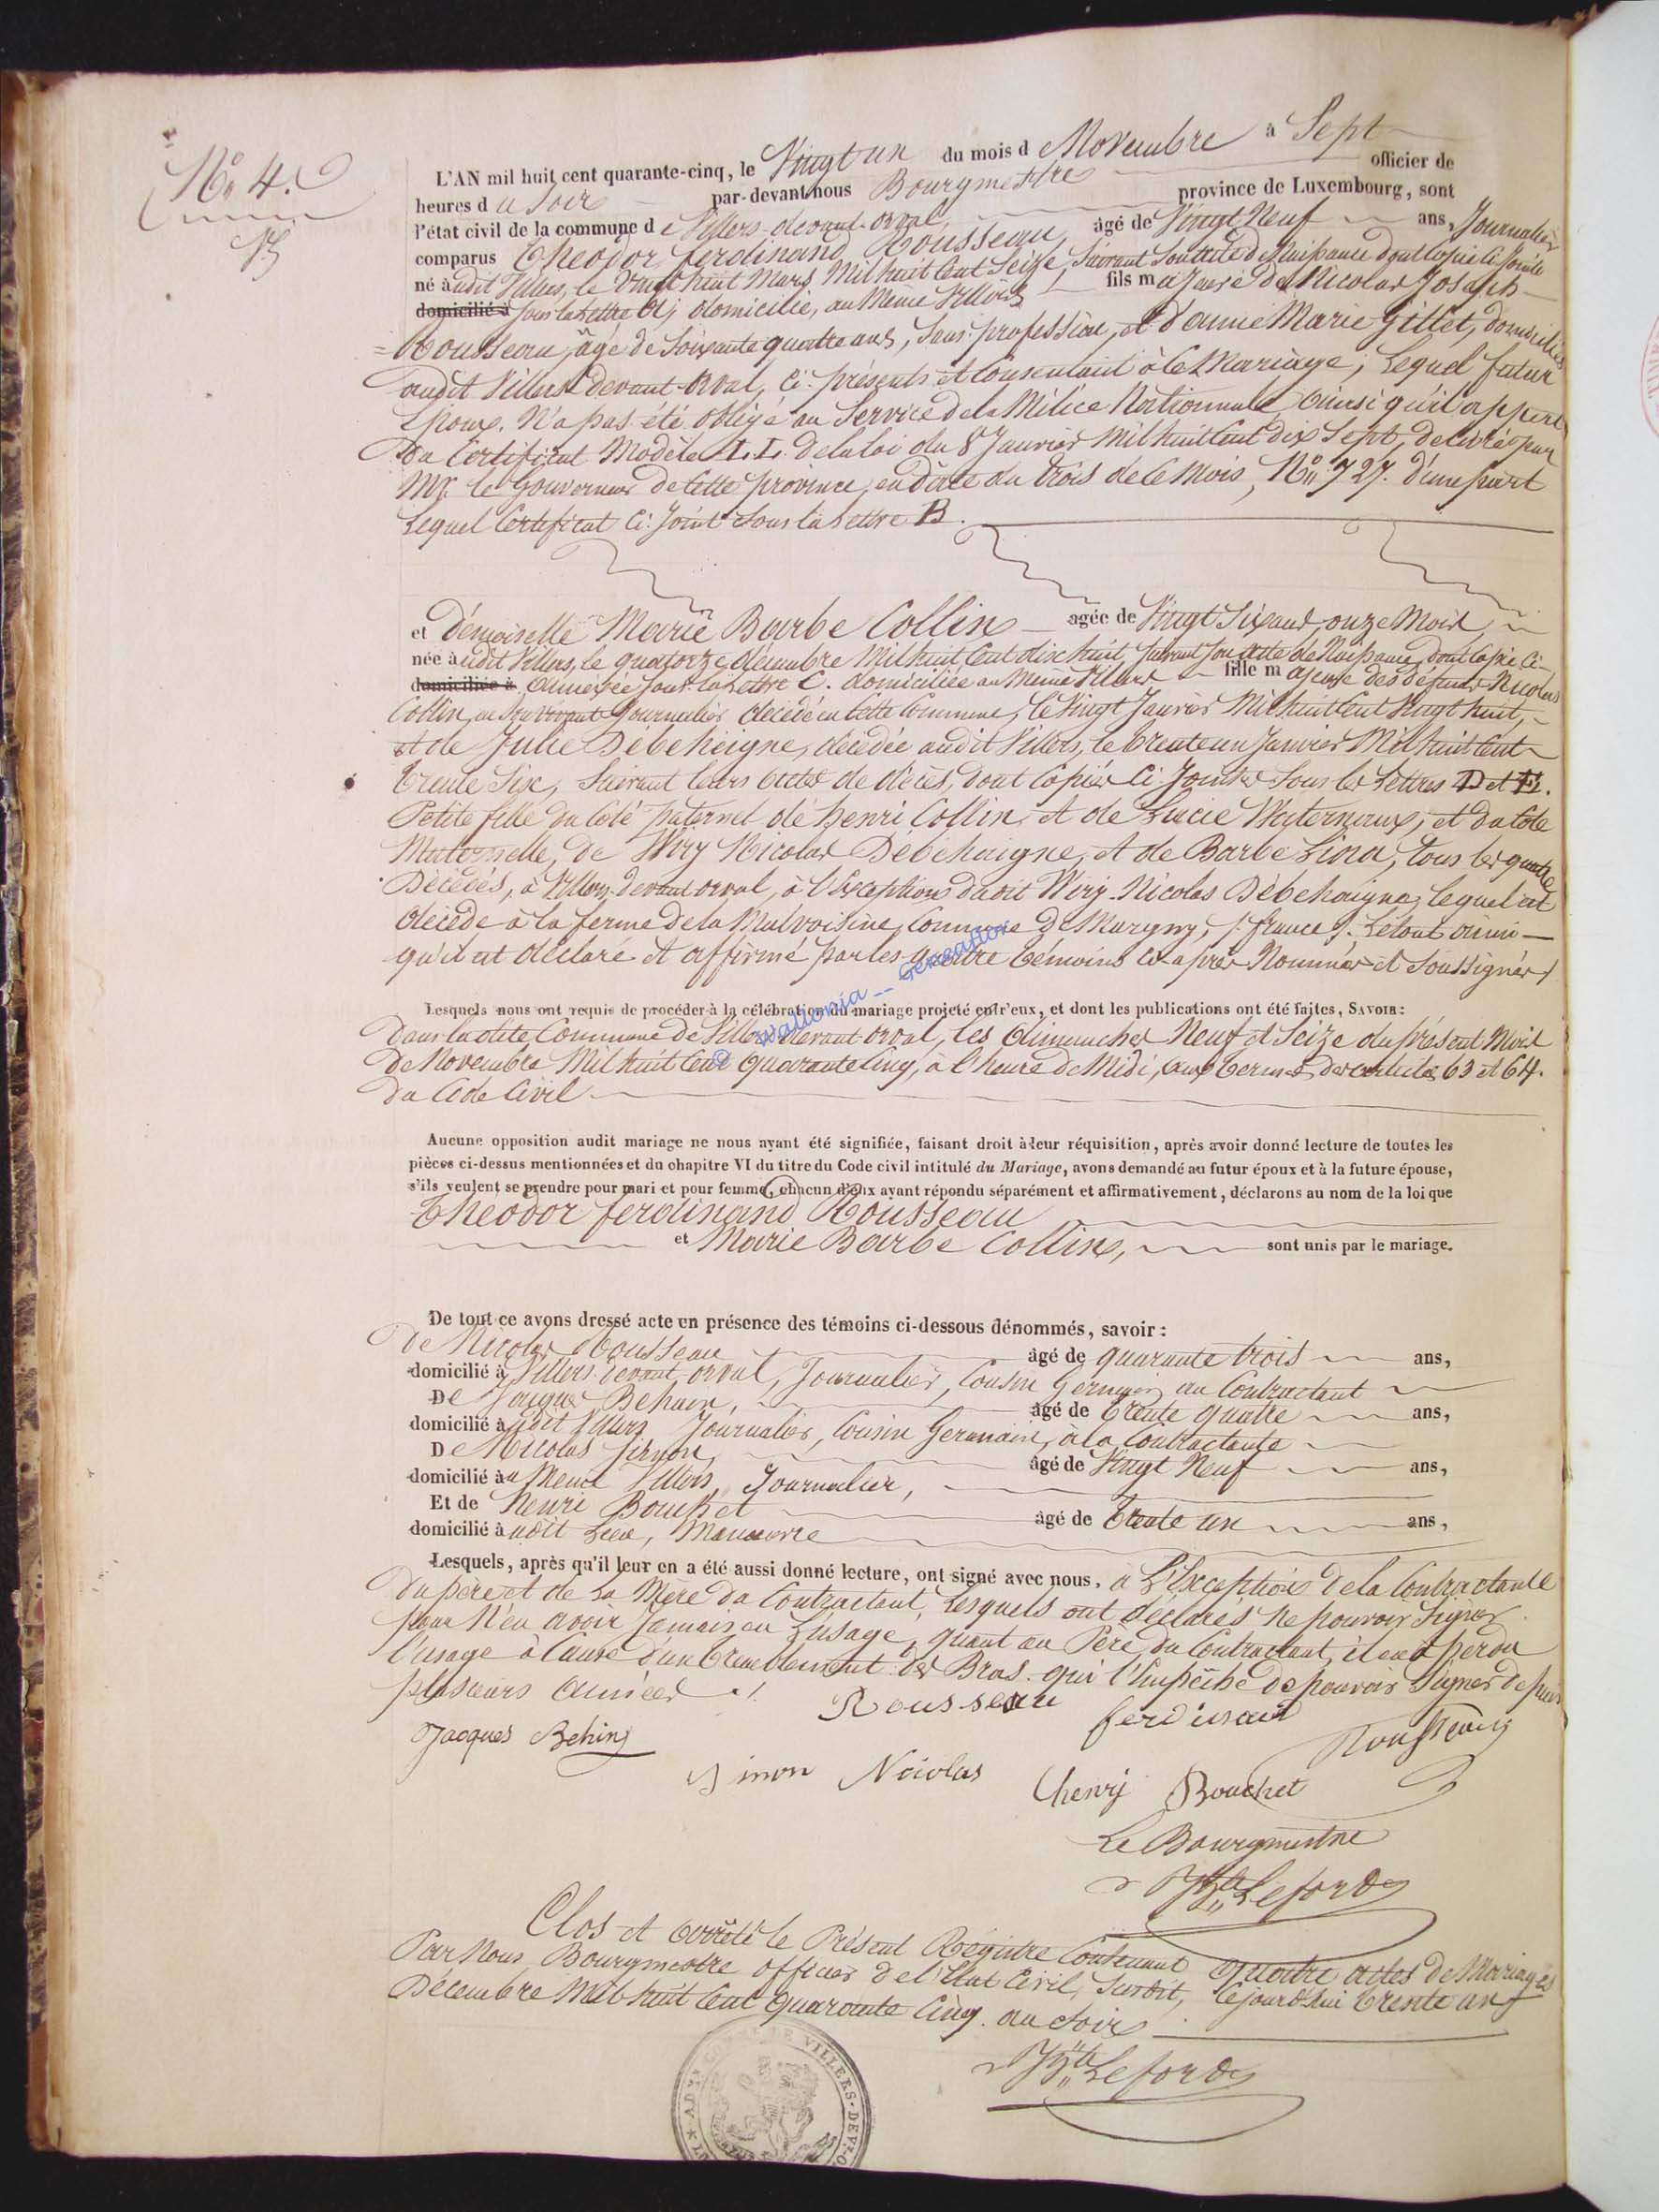 N° 4.
L'AN mil huit cent quarante-cinq, le Vingt un du mois d Novembre à Sept
heures d u Soir par-devant nous Bourgmestre officier de
l'état civil de la commune d e Villers-devant-orval, province de Luxembourg, sont
comparus Theodor ferdinand Rousseau, âgé de Vingt Neuf ans, Journalier
né audit Villers, le Vingt huit Mars Mil huit Cent Seize, Suivant Son acte de Naissance dont Copie Ci Jointe
domicilié à sous la Lettre A; domicilié, au Même Villers fils m ajeur de Nicolas Joseph
Rousseau, âgé de Soixante quatre ans, Sans profession, et d'anne Marie Gillet, domiciliés
audit Villers devant-Orval, Ci-présents et Consentant à Ce Mariage; Lequel futur
Epoux. N'a pas été obligé au Service de la Milice Nationnale, ainsi qu'il appert
Du Certificat Modèle L.L. de la loi du 8 Janvier Mil huit Cent dix Sept, delivré par
Mr. le Gouverneur de Cette province, en date du trois de Ce Mois, N° 727. d'une part
Lequel Certificat Ci-Joint Sous la Lettre B.
et Démoiselle Marie Barbe Collin agée de Vingt Six ans, onze Mois,
née audit Villers, le quatorze décembre Mil huit Cent dix huit, Suivant Son acte de Naissance, dont Copie Ci-
domiciliée à Annexée Sous la Lettre C. domiciliée au Même Villers fille m ajeure des défunts Nicolas
Collin, en Son vivant Journalier, décédé en Cette Commune, le Vingt Janvier Mil huit Cent Vingt huit,
et de Julie Débeheigne, décédée audit Villers, le trente un Janvier Mil huit Cent
trente Six, Suivant leurs actes de décès, dont Copies Ci-Jointes Sous les Lettres D et E.
Petite fille du Coté paternel de henri Collin et de Lucie Waternaux, et du Coté
Maternelle, de Wiry Nicolas Débehaigne, et de Barbe Lina, tous les quatre
Décédés, à Villers-devant orval, à l'Exception dudit Wiry-Nicolas Débehaigne, lequel est
décédé à la ferme de la Malvoisine, Commune de Margny, /. france /. Le tout ainsi
qu'il est déclaré et affirmé par les quatre témoins Ci-après Nommés et Soussignés /
Wallonia -- Geneaflore
Lesquels nous ont requis de procéder à la célébration du mariage projeté entr'eux, et dont les publications ont été faites, SAVOIR:
Dans ladite Commune de Villers devant orval, les dimanches Neuf et Seize du présent Mois
De Novembre Mil huit Cent quarante Cinq, à l'heure de Midi, aux termes des articles 63 et 64.
Du Code Civil
Aucune opposition audit mariage ne nous ayant été signifiée, faisant droit à leur réquisition, après avoir donné lecture de toutes les
pièces ci-dessus mentionnées et du chapitre VI du titre du Code civil intitulé du Mariage, avons demandé au futur époux et à la future épouse,
s'ils veulent se prendre pour mari et pour femme, chacun d'eux ayant répondu séparément et affirmativement, déclarons au nom de la loi que
Theodor ferdinand Rousseau
et Marie Barbe Collin, sont unis par le mariage.
De tout ce avons dressé acte en présence des témoins ci-dessous dénommés, savoir:
de Nicolas Rousseau âgé de quarante trois ans,
domicilié à Villers devant-orval, Journalier, Cousin Germain au Contractant
De Jacques Behain, âgé de trente quatre ans,
domicilié audit Villers Journalier, Cousin Germain, à la Contractante
De Nicolas Simon, âgé de Vingt Neuf ans,
domicilié au Même Villers, Journalier,
Et de henri Bouchet âgé de trente un ans,
domicilié audit Lieu, Manœuvre
Lesquels, après qu'il leur en a été aussi donné lecture, ont signé avec nous, à L'Exception de la Contractante
Du père et de La Mère du Contractant, Lesquels ont déclarés Ne pouvoir Signer
pour N'en avoir Jamais eu L'usage, quant au Père du Contractant, il en a perdu
l'usage à Cause d'un tremblement des Bras qui l'Empêche de pouvoir Signer depuis
plusieurs années ./.
Rousseau ferdinand
Jacques Behin Rousseau
Simon Nicolas Chenry Bouchet
Le Bourgmestre
Leford
Clos et arrêté le Présent Régistre Contenant quatre actes de Mariages
Par Nous Bourgmestre officier de l'Etat Civil, Susdit, Cejourd'hui trente un
Décembre Mil huit Cent quarante Cinq. au Soir
Leford
VILLERS-DEVT-O